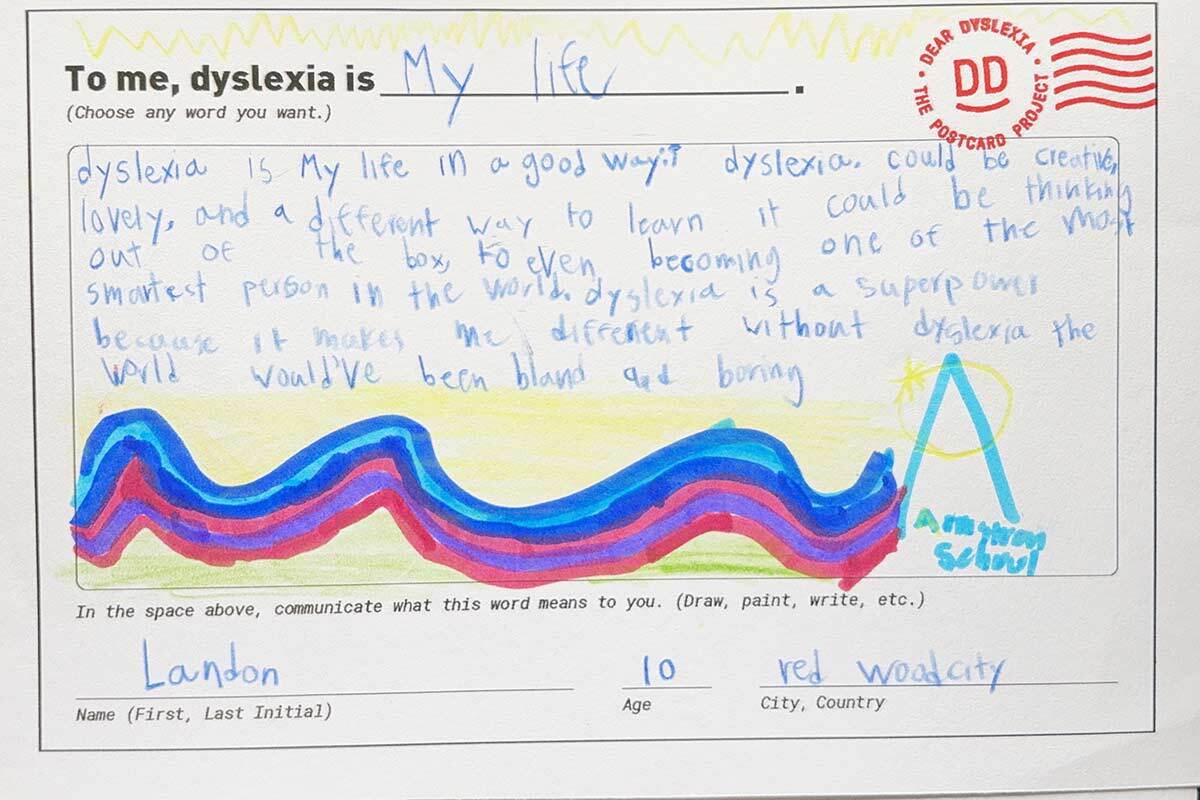 To me, dyslexia is My life.
(Choose any word you want.)
DEAR DYSLEXIA • THE POSTCARD PROJECT •
DD
dyslexia is My life in a good way!! dyslexia. could be creative,
lovely, and a different way to learn it could be thinking
out of the box, to even becoming one of the most
smartest person in the world. dyslexia is a superpower
because it makes me different without dyslexia the
world would've been bland and boring
A
Armstrong
School
In the space above, communicate what this word means to you. (Draw, paint, write, etc.)
Landon 10 red woodcity
Name (First, Last Initial) Age City, Country